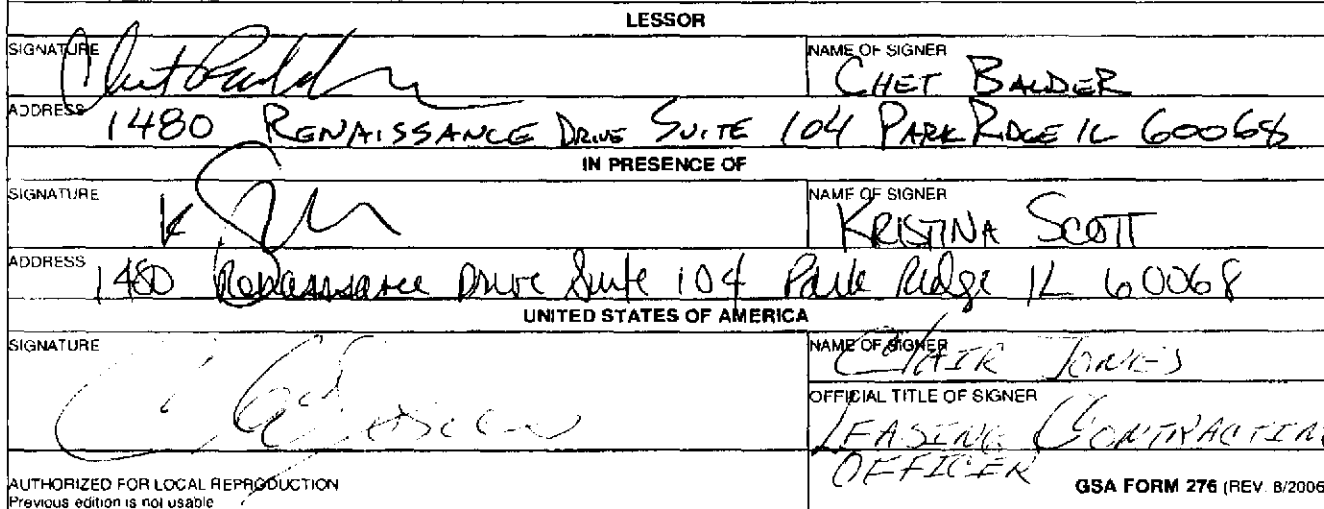 LESSOR
SIGNATURE
NAME OF SIGNER
CHET BALDER
ADDRESS
1480 RENAISSANCE DRIVE SUITE 104 PARK RIDGE IL 60068
IN PRESENCE OF
SIGNATURE
NAME OF SIGNER
KRISTINA SCOTT
ADDRESS
1480 Renaissance Drive Suite 104 Park Ridge IL 60068
UNITED STATES OF AMERICA
SIGNATURE
NAME OF SIGNER
JONES
OFFICIAL TITLE OF SIGNER
LEASING CONTRACTING
OFFICER
AUTHORIZED FOR LOCAL REPRODUCTION
Previous edition is not usable
GSA FORM 276 (REV. 8/2006